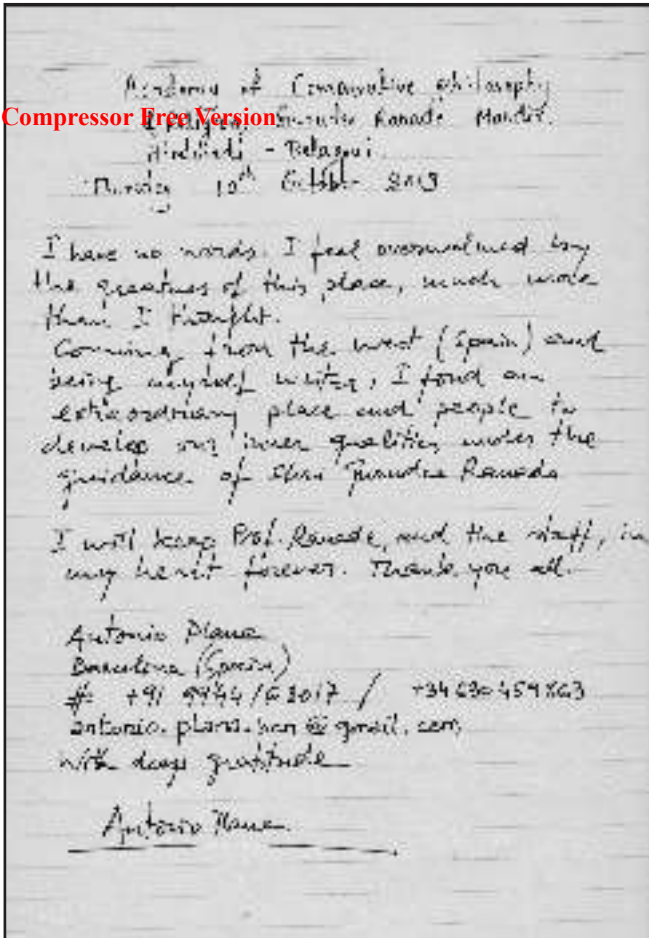 Academy of Comparative philosophy
Compressor Free Version
Religion Gurudev Ranade Mandir.
Hindwadi - Belagavi.
Thursday 10th October 2019
I have no words. I feel overwhelmed by
the greatness of this place, much more
than I thought.
Coming from the west (Spain) and
being myself writer, I fond an
extraordinary place and people to
develop our inner qualities under the
guidance of Shri Gurudev Ranade
I will keep Prof. Ranade, and the staff, in
my heart forever. Thank you all.
Antonio Plana
Barcelona (Spain)
# +91 /
antonio.plana. @ gmail.com
With deep gratitude
Antonio Plana